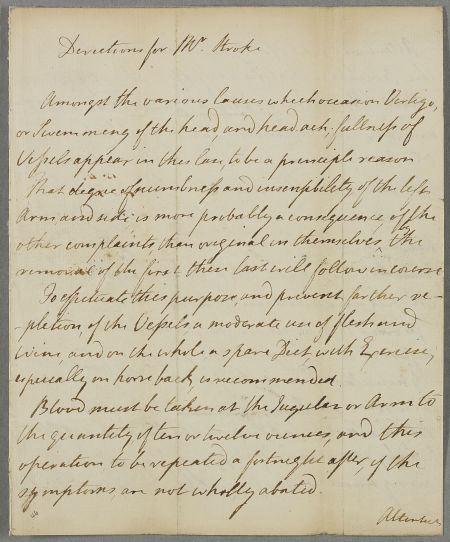 Directions for Mr. Stroke
Amongst the various Causes which occasion Vertigo,
or Swimming of the head, and head ach, fullness of
Vessels appear in this Case to be a principle reason
that degree of numbness and insensibility of the left
Arm and side is more probably a consequence of the
other complaints than original in themselves, the
removal of the first these last will follow in course
To effectuate this purpose, and prevent farther re-
-pletion, of the Vessels a moderate use of flesh and
Wine, and on the whole a spare Diet, with Exercise,
especially on horse back, is recommended.
Blood must be taken at the Jugular or Arm to
the quantity of ten or twelve ounces, and this
operation to be repeated a fortnight after, if the
symptoms are not wholly abated.